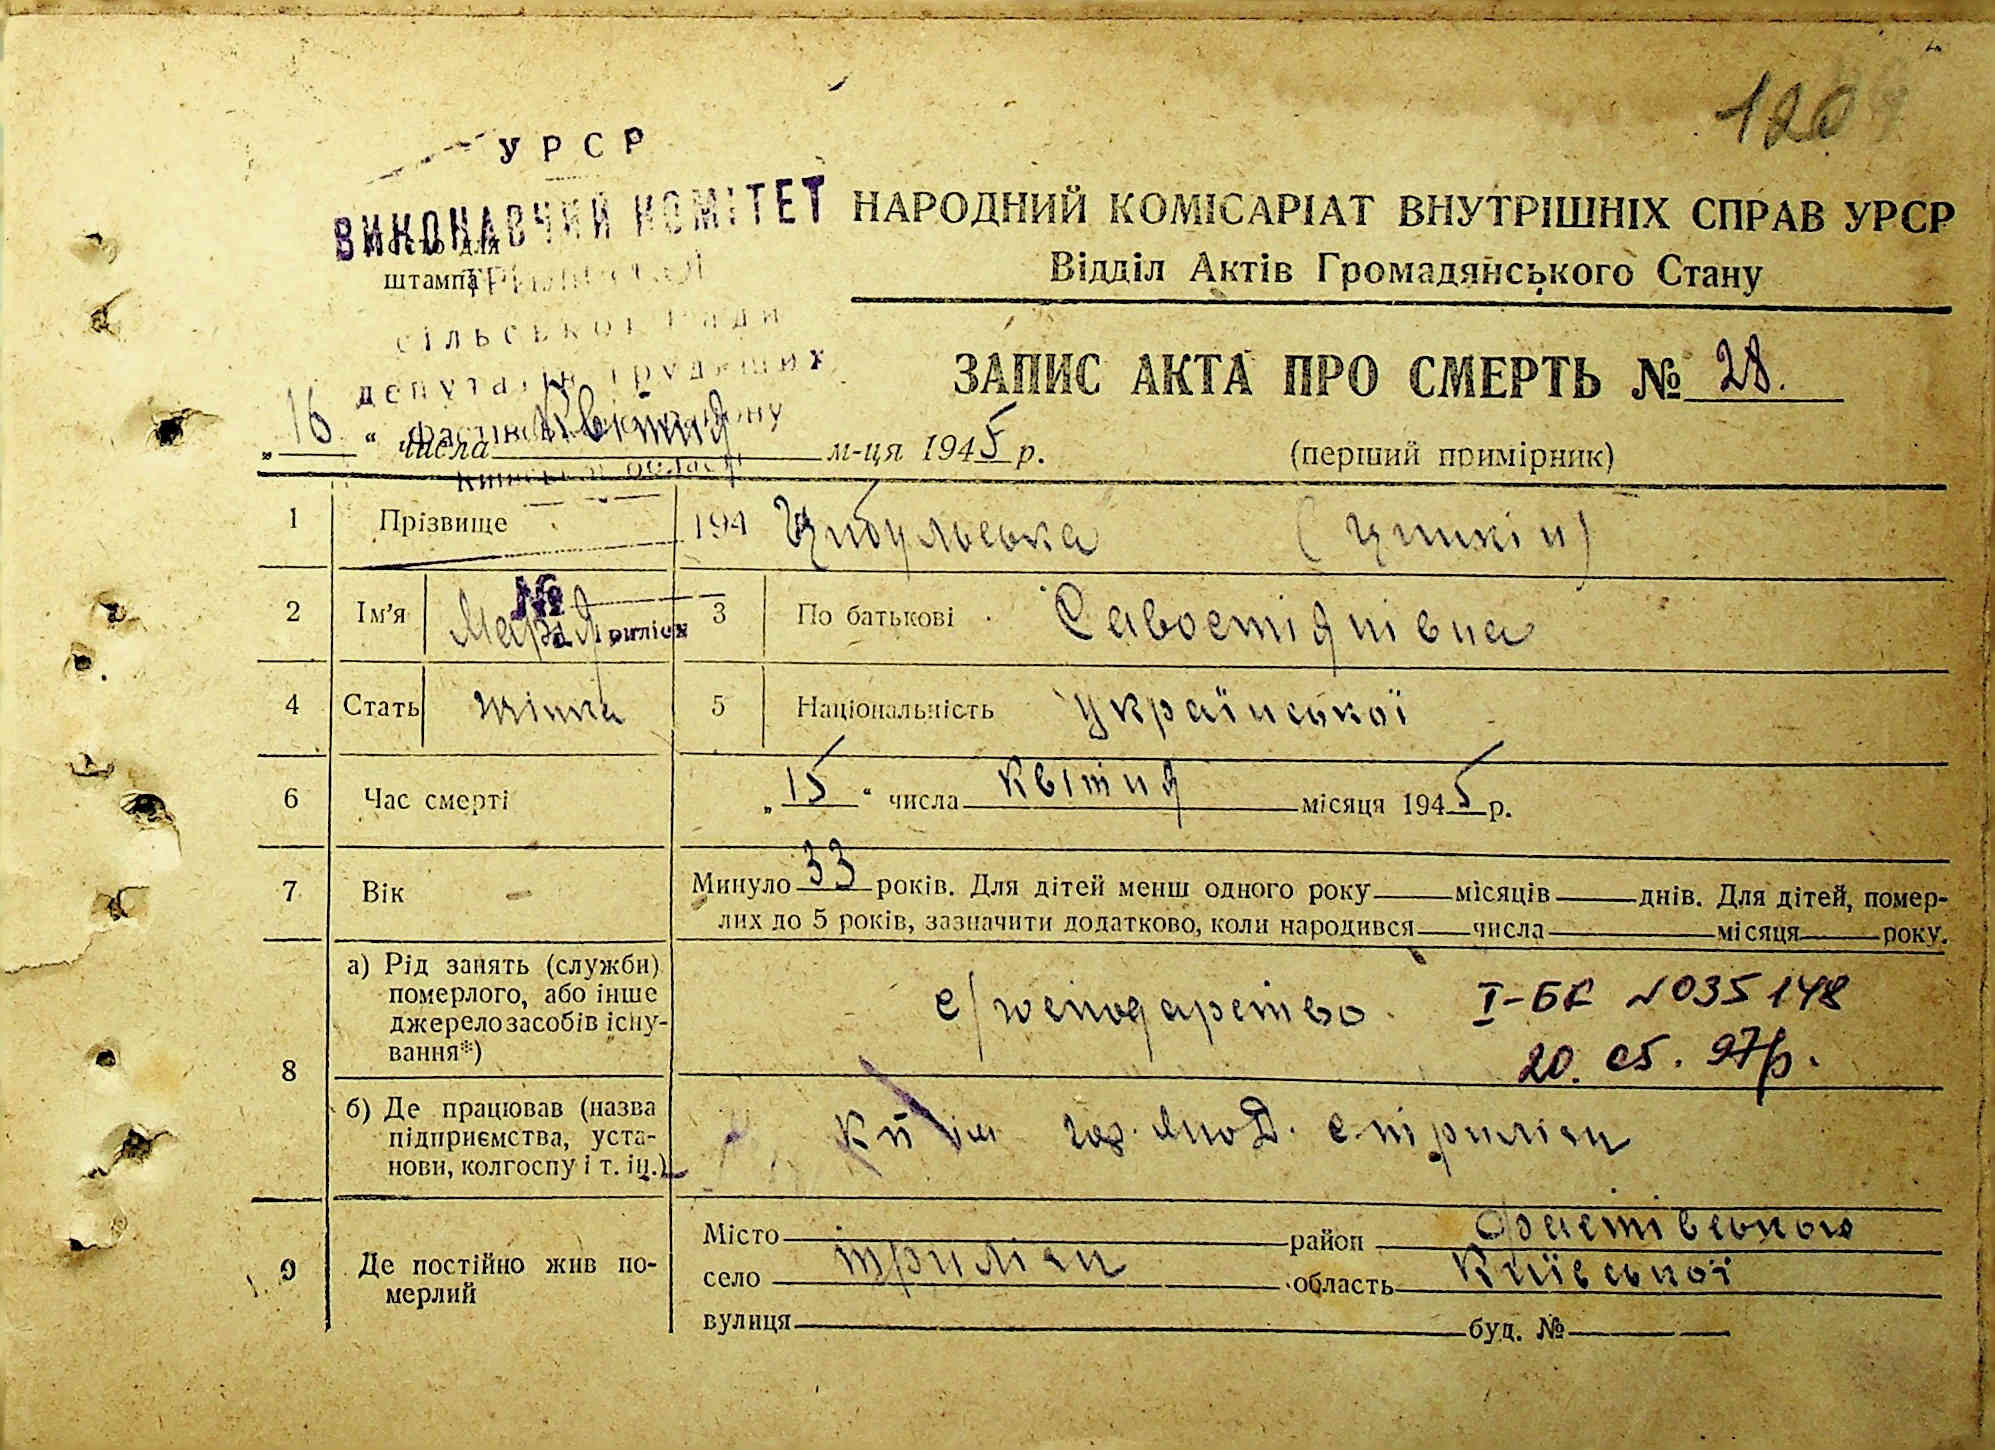 120
УРСР
ВИКОНАВЧИЙ КОМІТЕТ
НАРОДНИЙ КОМІСАРІАТ ВНУТРІШНІХ СПРАВ УРСР
штампа
Відділ Актів Громадянського Стану
сільської Ради
депутатів трудящих
ЗАПИС АКТА ПРО СМЕРТЬ № 28.
„16“ числа Квітня м-ця 1945 р.
(перший примірник)
Київської області
1 Прізвище 194 Цибульська
2 Ім'я Марія 3 По батькові Савостіянівна
№
4 Стать жінка 5 Національність Української
6 Час смерті „15“ числа Квітня місяця 1945 р.
7 Вік Минуло 33 років. Для дітей менш одного року місяців днів. Для дітей, помер-
лих до 5 років, зазначити додатково, коли народився числа місяця року.
8 а) Рід занять (служби)
померлого, або інше
джерело засобів існу-
вання*)
с/господарство
І-БК №035148
20. 05. 97р.
б) Де працював (назва
підприємства, уста-
нови, колгоспу і т. ін.)
с триліси
9 Де постійно жив по-
мерлий
Місто район Фастівського
село триліси область Київської
вулиця буд. №